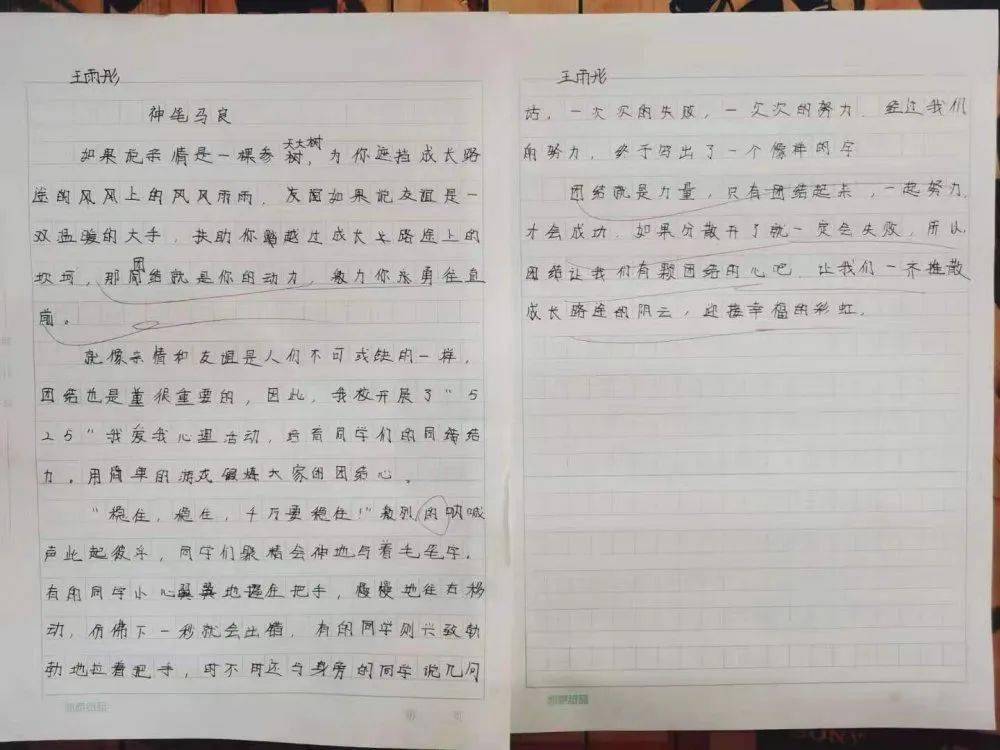 王雨彤
神笔马良
如果说亲情是一棵参天大树,为你遮挡成长路
途的风风上的风风雨雨,友如果说友谊是一
双温暖的大手,扶助你越过成长路途上的
坎坷,那团结就是你的动力,激力你永勇往直
前。
就像亲情和友谊是人们不可或缺的一样,
团结也是重很重要的,因此,我校开展了“5
25”我爱我心理活动,培育同学们的团结
力。用简单的游戏锻炼大家的团结心。
“稳住,稳住,千万要稳住!”激烈的呐喊
声此起彼乎,同学们聚精会神地写着毛笔字。
有的同学小心翼翼地握住把手,慢慢地往右移
动,仿佛下一秒就会出错,有的同学则兴致勃
勃地拉着把手,时不时还与身旁的同学说几句
王雨彤
话,一次次的失败,一次次的努力.经过我们
的努力,终于写出了一个像样的字
团结就是力量,只有团结起来,一起努力
才会成功.如果分散开了就一定会失败,所以
团结让我们有颗团结的心吧.让我们一齐推散
成长路途的阴云,迎接幸福的彩虹.